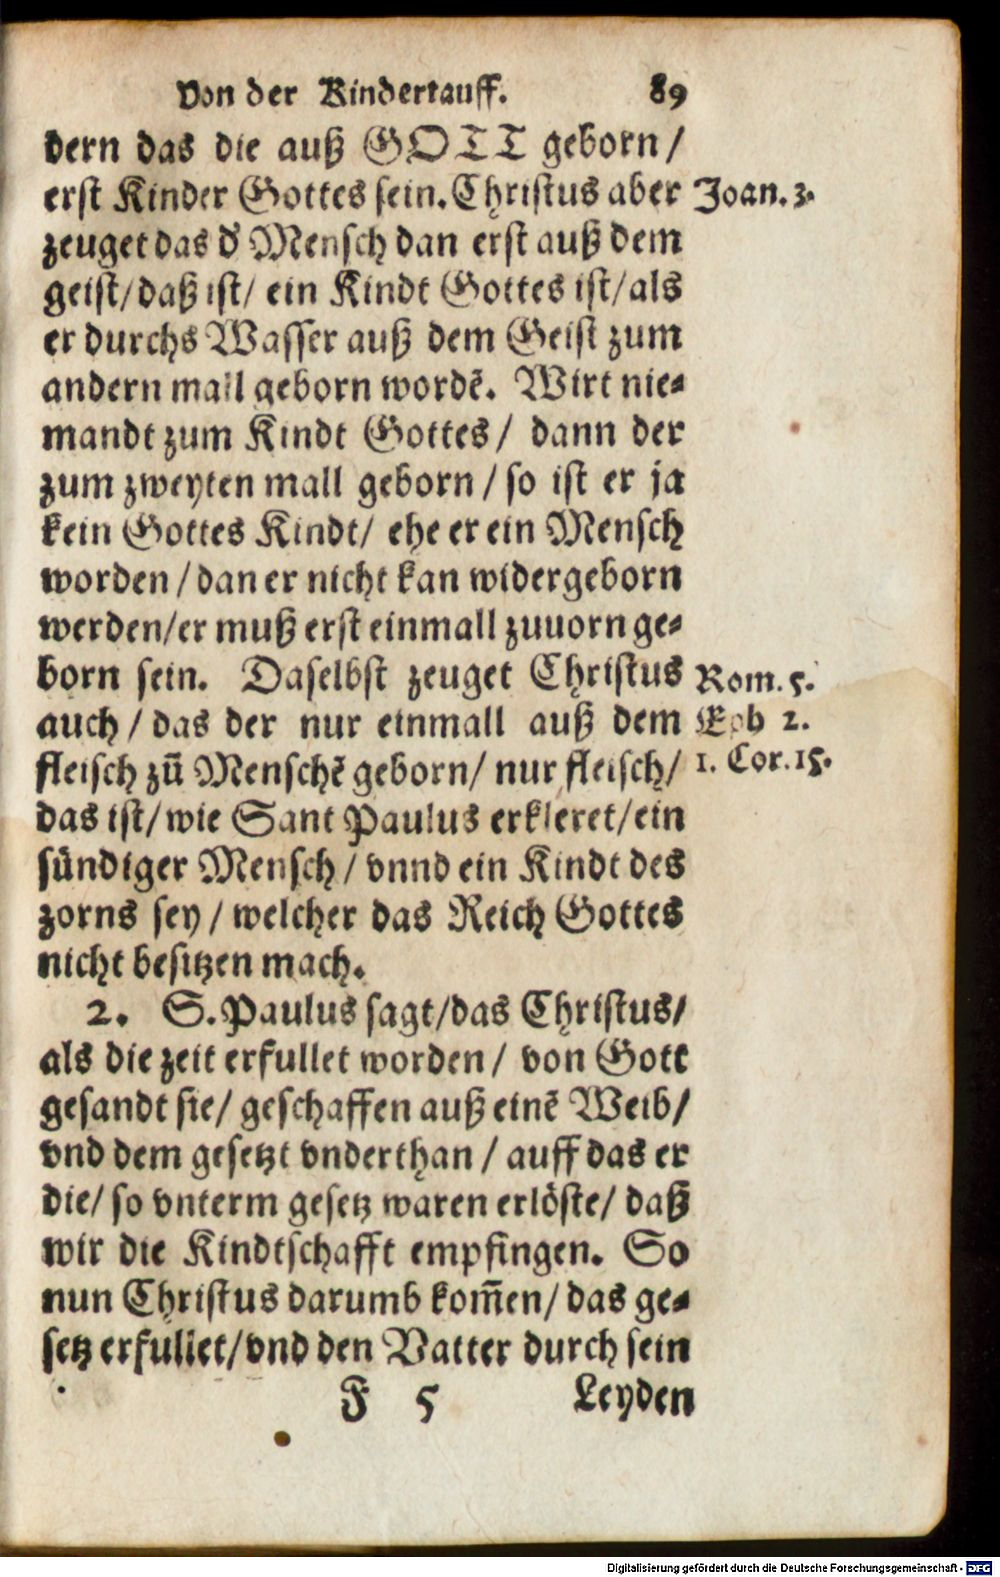 Von der Kindertauff. 89
dern das die auß GOTT geborn/
erst Kinder Gottes sein. Christus aber Joan. 3.
zeuget das d' Mensch dan erst auß dem
geist/daß ist/ ein Kindt Gottes ist/als
er durchs Wasser auß dem Geist zum
andern mall geborn wordē. Wirt nie⸗
mandt zum Kindt Gottes/ dann der
zum zweyten mall geborn/so ist er ja
kein Gottes Kindt/ ehe er ein Mensch
worden/dan er nicht kan widergeborn
werden/er muß erst einmall zuuorn ge⸗
born sein. Daselbst zeuget Christus Rom. 5.
auch/das der nur einmall auß dem Eph 2.
fleisch zū Menschē geborn/ nur fleisch/ 1. Cor. 15.
das ist/wie Sant Paulus erkleret/ein
sündiger Mensch/vnnd ein Kindt des
zorns sey/welcher das Reich Gottes
nicht besitzen mach.
2. S. Paulus sagt/das Christus/
als die zeit erfullet worden/ von Gott
gesandt sie/ geschaffen auß einē Weib/
vnd dem gesetzt vnderthan/auff das er
die/so vnterm gesetz waren erlöste/ daß
wir die Kindtschafft empfingen. So
nun Christus darumb kom̄en/das ge⸗
setz erfullet/vnd den Vatter durch sein
F 5 Leyden
Digitalisierung gefördert durch die Deutsche Forschungsgemeinschaft - DFG